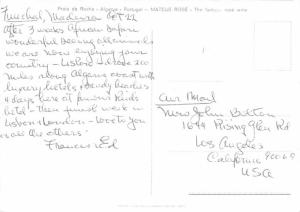 Praia da Rocha - Algarve - Portugal - MATEUS ROSÉ - The famous rosé wine
Funchal, Madeira Oct 22
After 3 weeks African Safari
wonderful seeing all animals
we are now enjoying your
country - Lisbon & drove 200
miles along Algarve coast with
luxury hotels & sandy beaches
4 days here at famous Reids
hotel - then finish week in
Lisbon & London - love to you
& all the others.
Frances & Ed
Air Mail
Mrs John Bolton
1644 Rising Glen Rd
Los Angeles
California 90069
USA